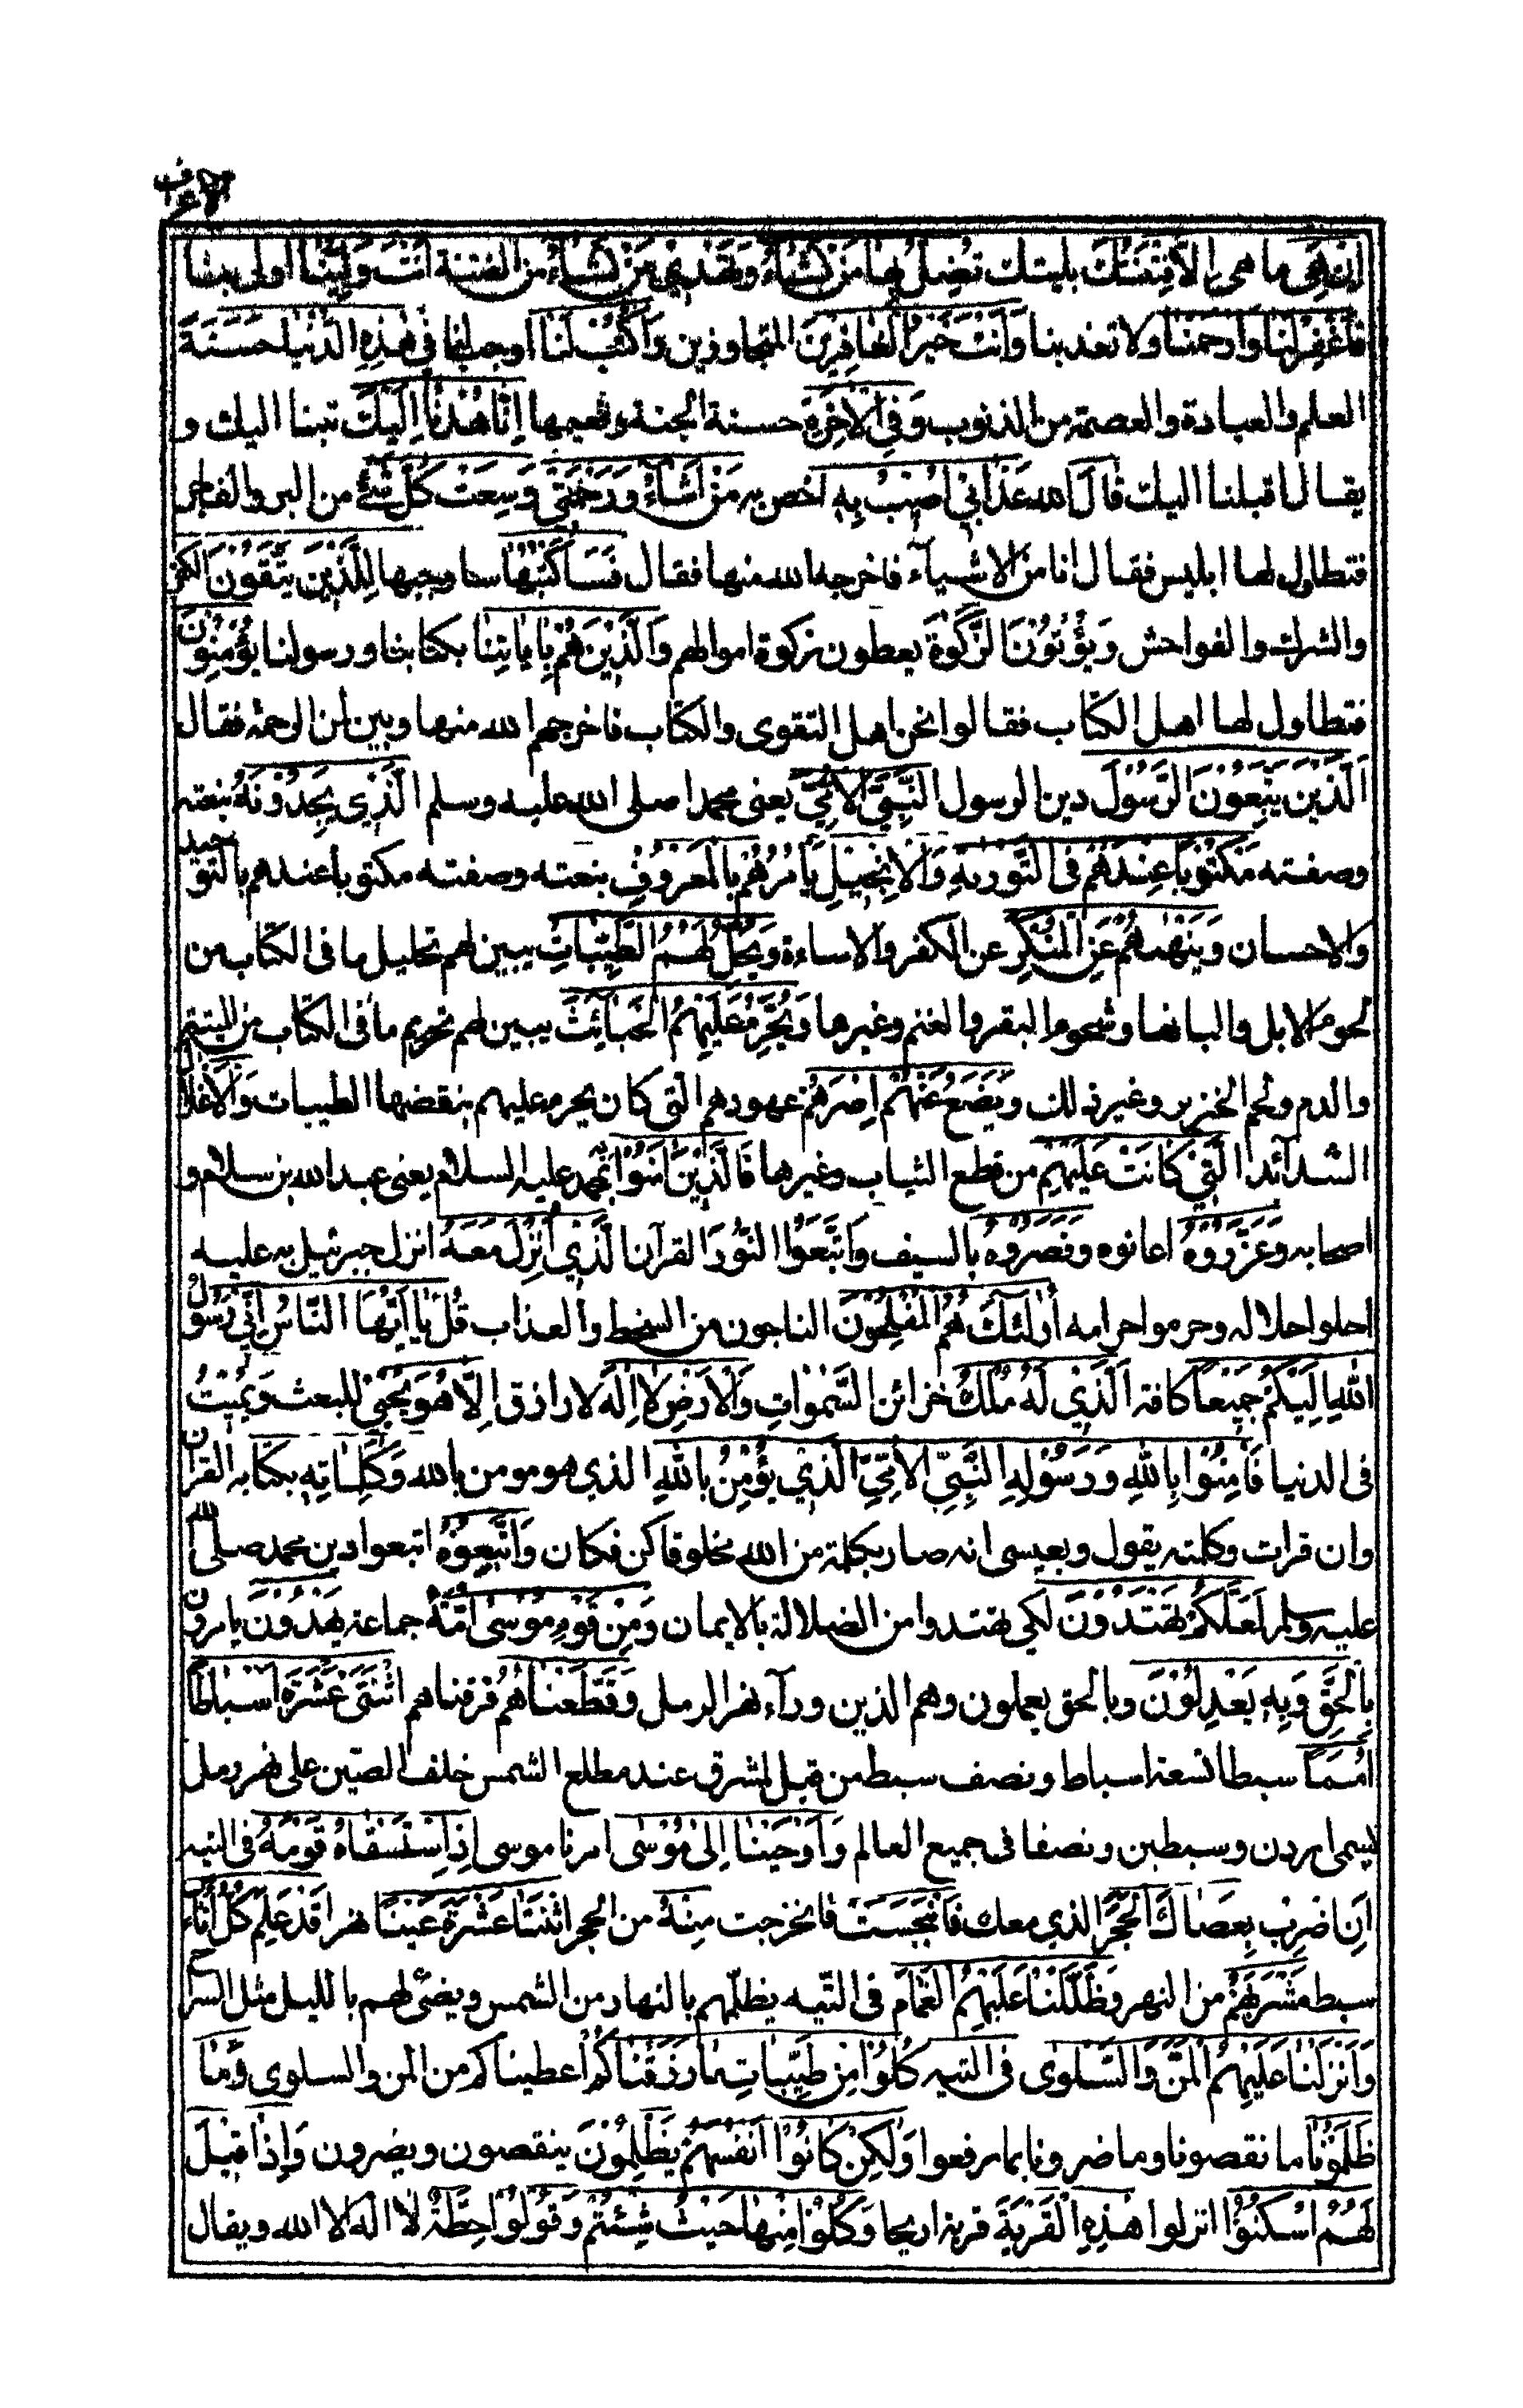 الاعراف
اِنْ هِيَ ما هى اِلَّا فِتْنَتُكَ بليتك تُضِلُّ بِهَا مَنْ تَشَاءُ وَتَهْدِيْ مَنْ تَشَاءُ من الفتنة اَنْتَ وَلِيُّنَا اولى بنا
فَاغْفِرْ لَنَا وَارْحَمْنَا ولا تعذبنا وَاَنْتَ خَيْرُ الْغَافِرِيْنَ المتجاوزين وَاكْتُبْ لَنَا اوجب لنا فِيْ هٰذِهِ الدُّنْيَا حَسَنَةً
العلم والعبادة والعصمة من الذنوب وَفِي الْاٰخِرَةِ حسنة الجنة ونعيمها اِنَّا هُدْنَا اِلَيْكَ تبنا اليك و
يقال اقبلنا اليك قَالَ الله عَذَابِيْ اُصِيْبُ بِهٖ اخص به مَنْ اَشَاءُ وَرَحْمَتِيْ وَسِعَتْ كُلَّ شَيْءٍ من البر والفاجر
فتطاول لها ابليس فقال انا من الاشياء فاخرجه الله منها فقال فَسَاَكْتُبُهَا ساوجبها لِلَّذِيْنَ يَتَّقُوْنَ الكفر
والشرك والفواحش وَيُؤْتُوْنَ الزَّكٰوةَ يعطون زكوة اموالهم وَالَّذِيْنَ هُمْ بِاٰيَاتِنَا بكتابنا ورسولنا يُؤْمِنُوْنَ
فتطاول لها اهل الكتاب فقالوا نحن اهل التقوى والكتاب فاخرجهم الله منها وبين لمن الرحمة فقال
اَلَّذِيْنَ يَتَّبِعُوْنَ الرَّسُوْلَ دين الرسول النَّبِيَّ الْاُمِّيَّ يعنى محمدا صلى الله عليه وسلم الَّذِيْ يَجِدُوْنَهُ بنعته
وصفته مَكْتُوْبًا عِنْدَهُمْ فِى التَّوْرٰىةِ وَالْاِنْجِيْلِ يَاْمُرُهُمْ بِالْمَعْرُوْفِ بنعته وصفته مكتوبا عندهم بالتوحيد
والاحسان وَيَنْهٰىهُمْ عَنِ الْمُنْكَرِ عن الكفر والاساءة وَيُحِلُّ لَهُمُ الطَّيِّبَاتِ يبين لهم تحليل ما فى الكتاب من
لحوم الابل والبانها وشحوم البقر والغنم وغيرها وَيُحَرِّمُ عَلَيْهِمُ الْخَبَائِثَ يبين لهم تحريم ما فى الكتاب من الميتة
والدم ولحم الخنزير وغير ذلك وَيَضَعُ عَنْهُمْ اِصْرَهُمْ عهودهم التى كان يحرم عليهم بنقضها الطيبات وَالْاَغْلَالَ
الشدائد الَّتِيْ كَانَتْ عَلَيْهِمْ من قطع الثياب وغيرها فَالَّذِيْنَ اٰمَنُوْا بمحمد عليه السلام يعنى عبد الله بن سلام و
اصحابه وَعَزَّرُوْهُ اعانوه وَنَصَرُوْهُ بالسيف وَاتَّبَعُوا النُّوْرَ القرآن الَّذِيْ اُنْزِلَ مَعَهُ انزل جبرئيل به عليه
احلوا حلاله وحرموا حرامه اُولٰئِكَ هُمُ الْمُفْلِحُوْنَ الناجون من السخط والعذاب قُلْ يَا اَيُّهَا النَّاسُ اِنِّيْ رَسُوْلُ
اللهِ اِلَيْكُمْ جَمِيْعًا كافة الَّذِيْ لَهُ مُلْكُ خزائن السَّمٰوَاتِ وَالْاَرْضِ لَا اِلٰهَ لا رازق اِلَّا هُوَ يُحْيِيْ للبعث وَيُمِيْتُ
فى الدنيا فَاٰمِنُوْا بِاللهِ وَرَسُوْلِهِ النَّبِيِّ الْاُمِّيِّ الَّذِيْ يُؤْمِنُ بِاللهِ الذى هو مومن بالله وَكَلِمَاتِهٖ بكتابه القران
وان قرات وكلمته يقول وبعيسى انه صار بكلمة من الله مخلوقا كن فكان وَاتَّبِعُوْهُ اتبعوا دين محمد صلى الله
عليه وسلم لَعَلَّكُمْ تَهْتَدُوْنَ لكى تهتدوا من الضلالة بالايمان وَمِنْ قَوْمِ مُوْسٰى اُمَّةٌ جماعة يَهْدُوْنَ يامرون
بِالْحَقِّ وَبِهٖ يَعْدِلُوْنَ وبالحق يعملون وهم الذين ورآء نهر الرمل وَقَطَّعْنَاهُمُ فرقناهم اثْنَتَيْ عَشْرَةَ اَسْبَاطًا
اُمَمًا سبطا تسعة اسباط ونصف سبط من قبل المشرق عند مطلع الشمس خلف الصين على نهر رمل
يسمى اردن وسبطين ونصفا فى جميع العالم وَاَوْحَيْنَا اِلٰى مُوْسٰى امرنا موسى اِذِ اسْتَسْقَاهُ قَوْمُهُ فى التيه
اَنِ اضْرِبْ بِعَصَاكَ الْحَجَرَ الذى معك فَانْبَجَسَتْ فانخرجت مِنْهُ من الحجر اثْنَتَا عَشْرَةَ عَيْنًا نهرا قَدْ عَلِمَ كُلُّ اُنَاسٍ
سبط مَشْرَبَهُمْ من النهر وَظَلَّلْنَا عَلَيْهِمُ الْغَمَامَ فى التيه يظلهم بالنهار من الشمس ويضئ لهم بالليل مثل السراج
وَاَنْزَلْنَا عَلَيْهِمُ الْمَنَّ وَالسَّلْوٰى فى التيه كُلُوْا مِنْ طَيِّبَاتِ مَا رَزَقْنَاكُمْ اعطيناكم من المن والسلوى وَمَا
ظَلَمُوْنَا ما نقصونا وما ضرونا بما رفعوا وَلٰكِنْ كَانُوْا اَنْفُسَهُمْ يَظْلِمُوْنَ ينقصون ويضرون وَاِذْ قِيْلَ
لَهُمُ اسْكُنُوْا انزلوا هٰذِهِ الْقَرْيَةَ قرية اريحا وَكُلُوْا مِنْهَا حَيْثُ شِئْتُمْ وَقُوْلُوْا حِطَّةٌ لا اله الا الله ويقال